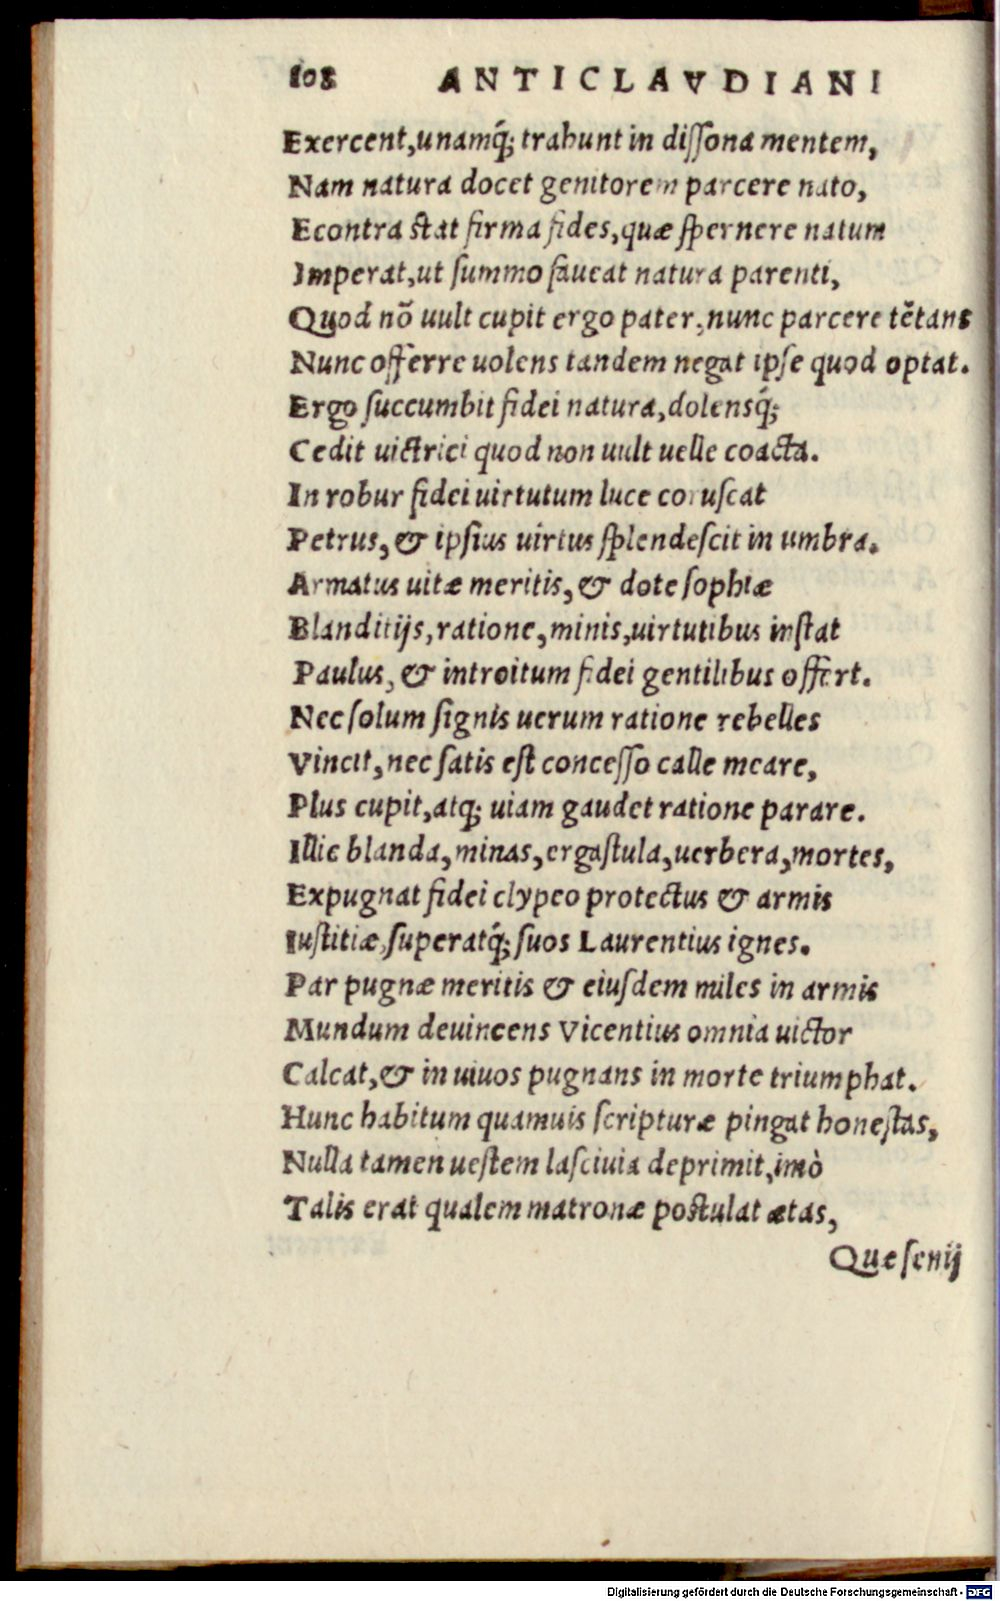 108 ANTICLAVDIANI
Exercent,unamq́; trahunt in dissona mentem,
Nam natura docet genitorem parcere nato,
Econtra stat firma fides,quæ spernere natum
Imperat,ut summo faueat natura parenti,
Quod nō uult cupit ergo pater,nunc parcere tētans
Nunc offerre uolens tandem negat ipse quod optat.
Ergo succumbit fidei natura,dolensq́;
Cedit uictrici quod non uult uelle coacta.
In robur fidei uirtutum luce coruscat
Petrus, & ipsius uirtus splendescit in umbra.
Armatus uitæ meritis, & dote sophiæ
Blanditijs, ratione, minis,uirtutibus instat
Paulus, & introitum fidei gentilibus offert.
Nec solum signis uerum ratione rebelles
Vincit, nec satis est concesso calle meare,
Plus cupit,atq; uiam gaudet ratione parare.
Illic blanda, minas, ergastula,uerbera,mortes,
Expugnat fidei clypeo protectus & armis
Iustitiæ,superatq́; suos Laurentius ignes.
Par pugnæ meritis & eiusdem miles in armis
Mundum deuincens Vicentius omnia uictor
Calcat,& in uiuos pugnans in morte triumphat.
Hunc habitum quamuis scripturæ pingat honestas,
Nulla tamen uestem lasciuia deprimit,imò
Talis erat qualem matronæ postulat ætas,
Quæ senij
Digitalisierung gefördert durch die Deutsche Forschungsgemeinschaft - DFG